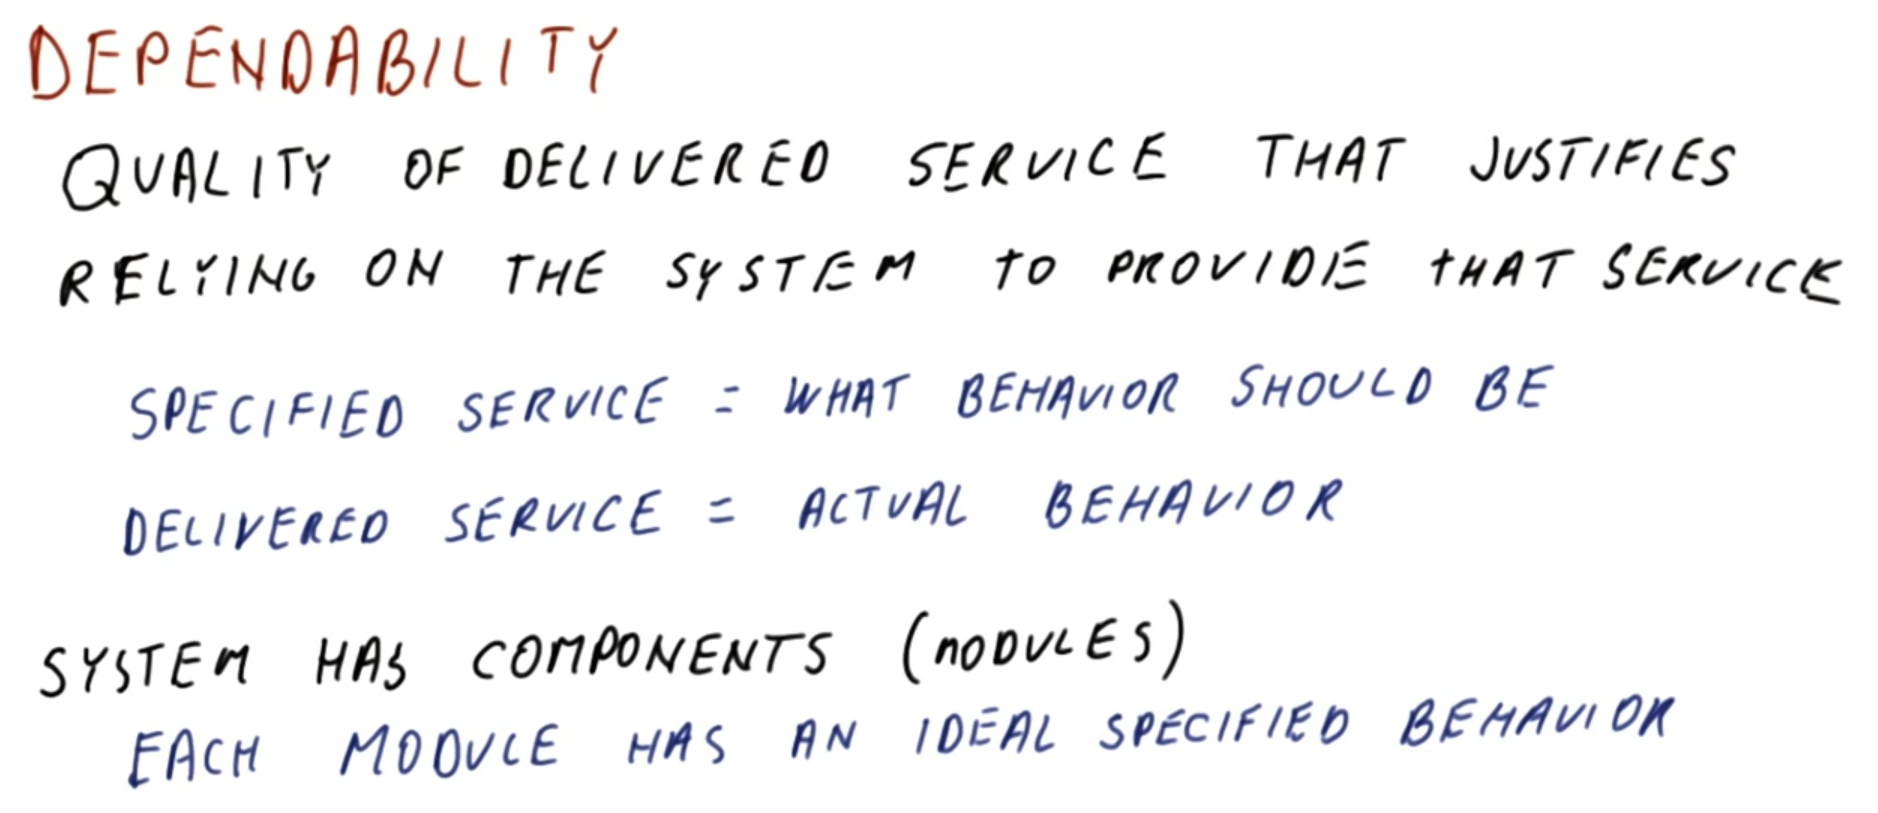 DEPENDABILITY
QUALITY OF DELIVERED SERVICE THAT JUSTIFIES
RELYING ON THE SYSTEM TO PROVIDE THAT SERVICE
SPECIFIED SERVICE = WHAT BEHAVIOR SHOULD BE
DELIVERED SERVICE = ACTUAL BEHAVIOR
SYSTEM HAS COMPONENTS (MODULES)
EACH MODULE HAS AN IDEAL SPECIFIED BEHAVIOR